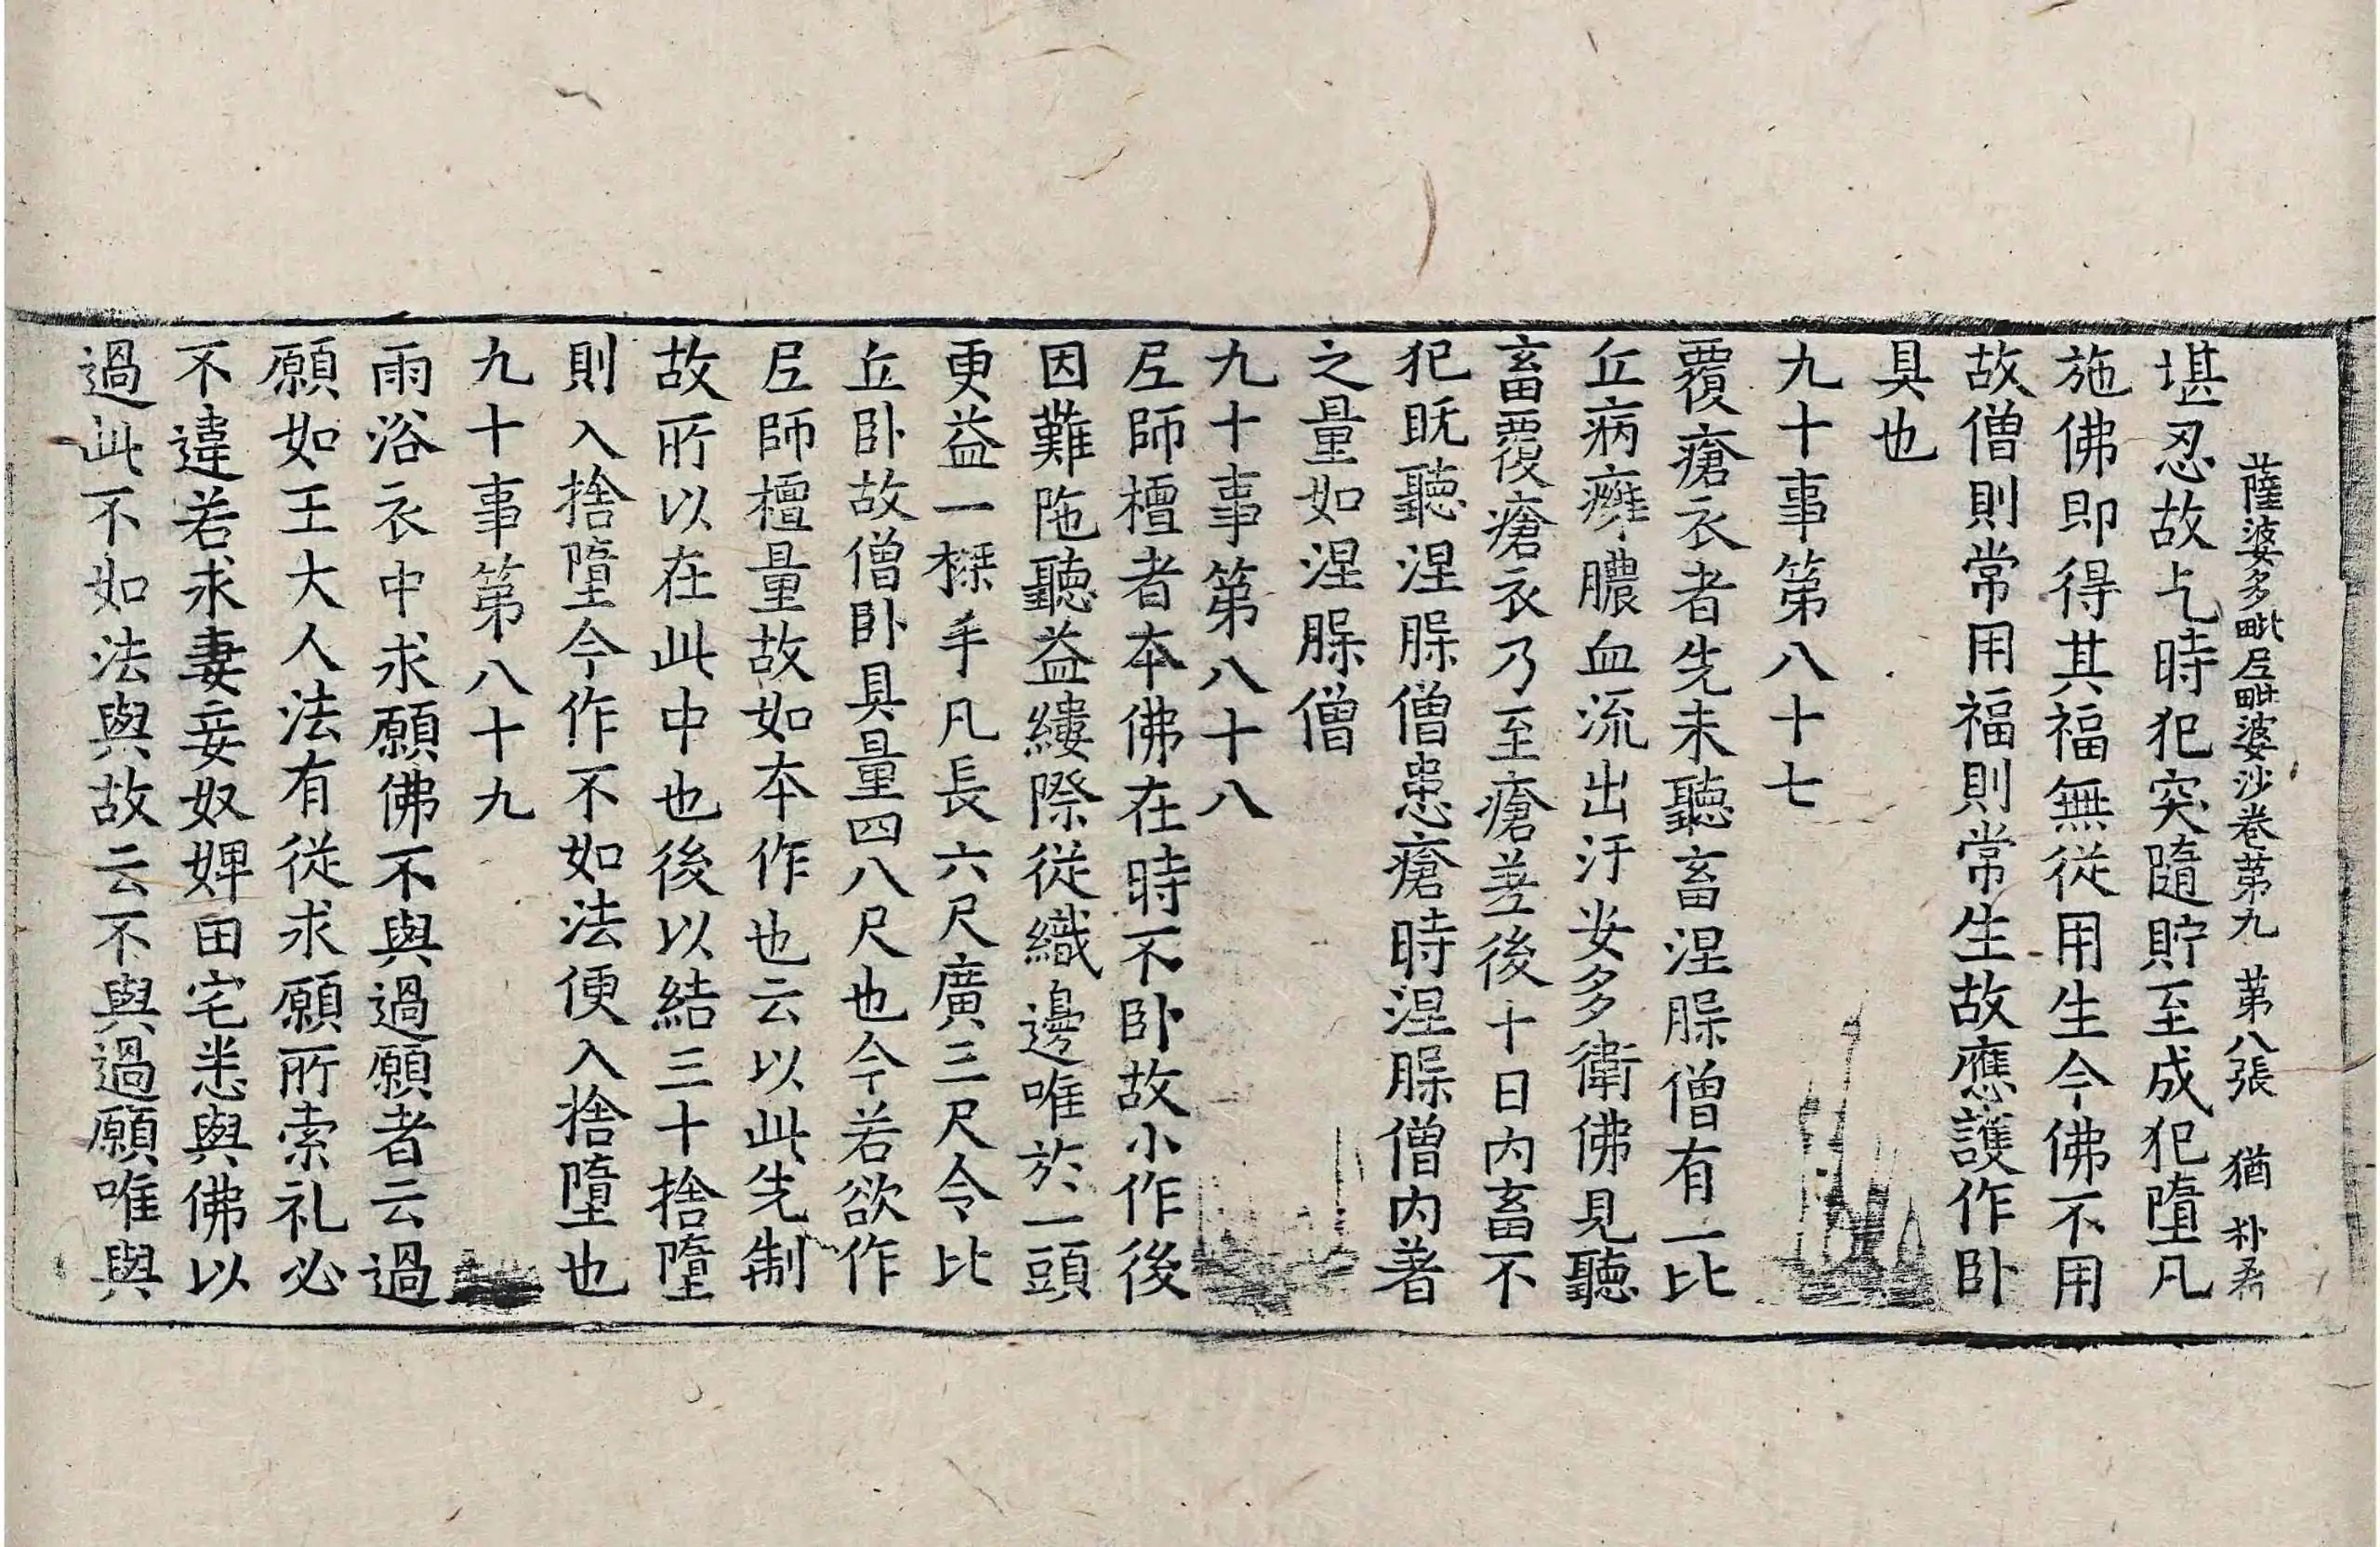 薩婆多毗尼毗婆沙卷苐九　苐八張　猶　朴
堪忍故乞時犯突隨貯至成犯墮凡
施佛即得其福無從用生今佛不用
故僧則常用福則常生故應護作卧
具也
九十事第八十七
覆瘡衣者先未聽畜涅脵僧有一比
丘病癰膿血流出汙安多衛佛見聽
畜覆瘡衣乃至瘡差後十日內畜不
犯旣聽涅脵僧患瘡時涅脵僧內著
之量如涅脵僧
九十事第八十八
尼師檀者本佛在時不卧故小作後
因難陁聽益縷際從織邊唯於一頭
更益一搩手凡長六尺廣三尺令比
丘卧故僧卧具量四八尺也今若欲作
尼師檀量故如本作也云以此先制
故所以在此中也後以結三十捨墮
則入捨墮今作不如法便入捨墮也
九十事第八十九
雨浴衣中求願佛不與過願者云過
願如王大人法有從求願所索礼必
不違若求妻妾奴婢田宅悉與佛以
過此不如法與故云不與過願唯與